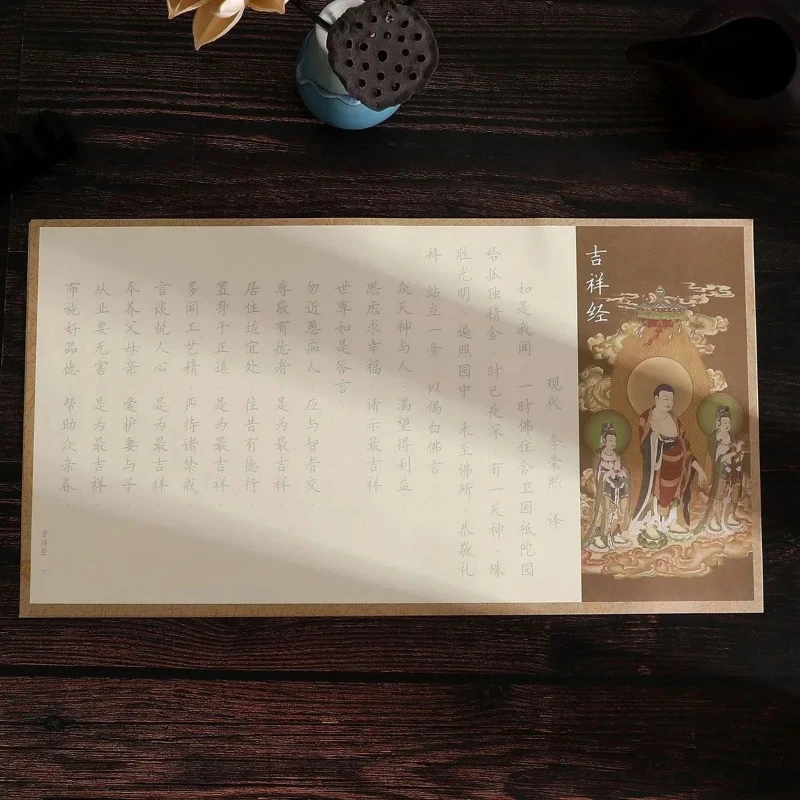 吉祥经
现代 李荣熙 译
如是我闻。一时佛住舍卫国祇陀园
给孤独精舍。时已夜深。有一天神。殊
胜光明。遍照园中。来至佛所。恭敬礼
拜。站立一旁。以偈白佛言。
众天神与人。渴望得利益。
思虑求幸福。请示最吉祥。
世尊如是答言。
勿近愚痴人。应与智者交。
尊敬有德者。是为最吉祥。
居住适宜处。往昔有德行。
置身于正道。是为最吉祥。
多闻工艺精。严持诸禁戒。
言谈悦人心。是为最吉祥。
奉养父母亲。爱护妻与子。
从业要无害。是为最吉祥。
布施好品德。帮助众亲眷。
吉祥经 一